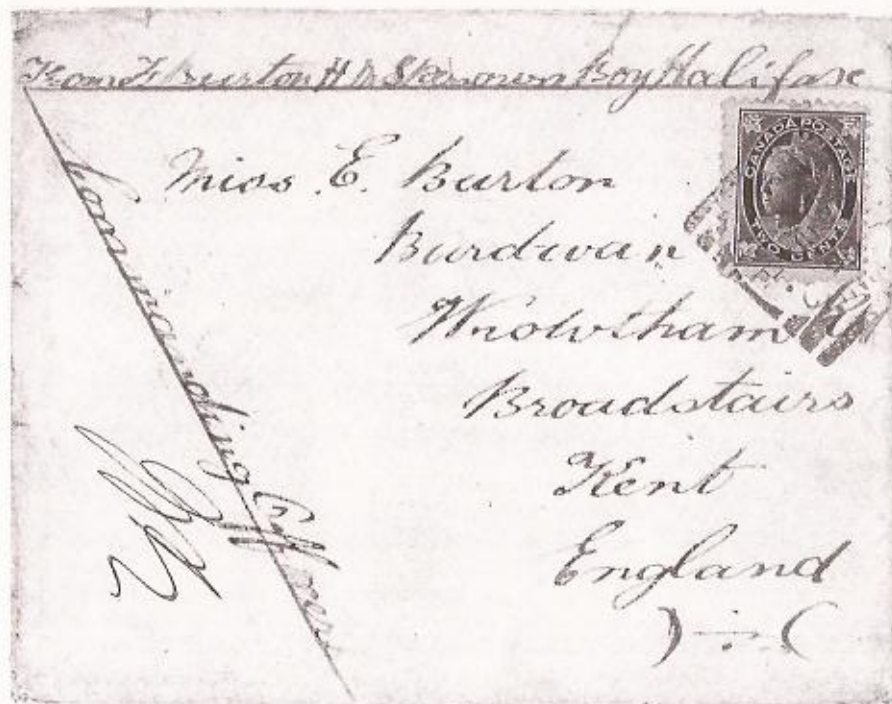 From F Burton H M S Renown Boy Halifax
CANADA POSTAGE
TWO CENTS
Miss E. Burton
Burdwan
Broadstairs
Kent
England
Commanding Officer